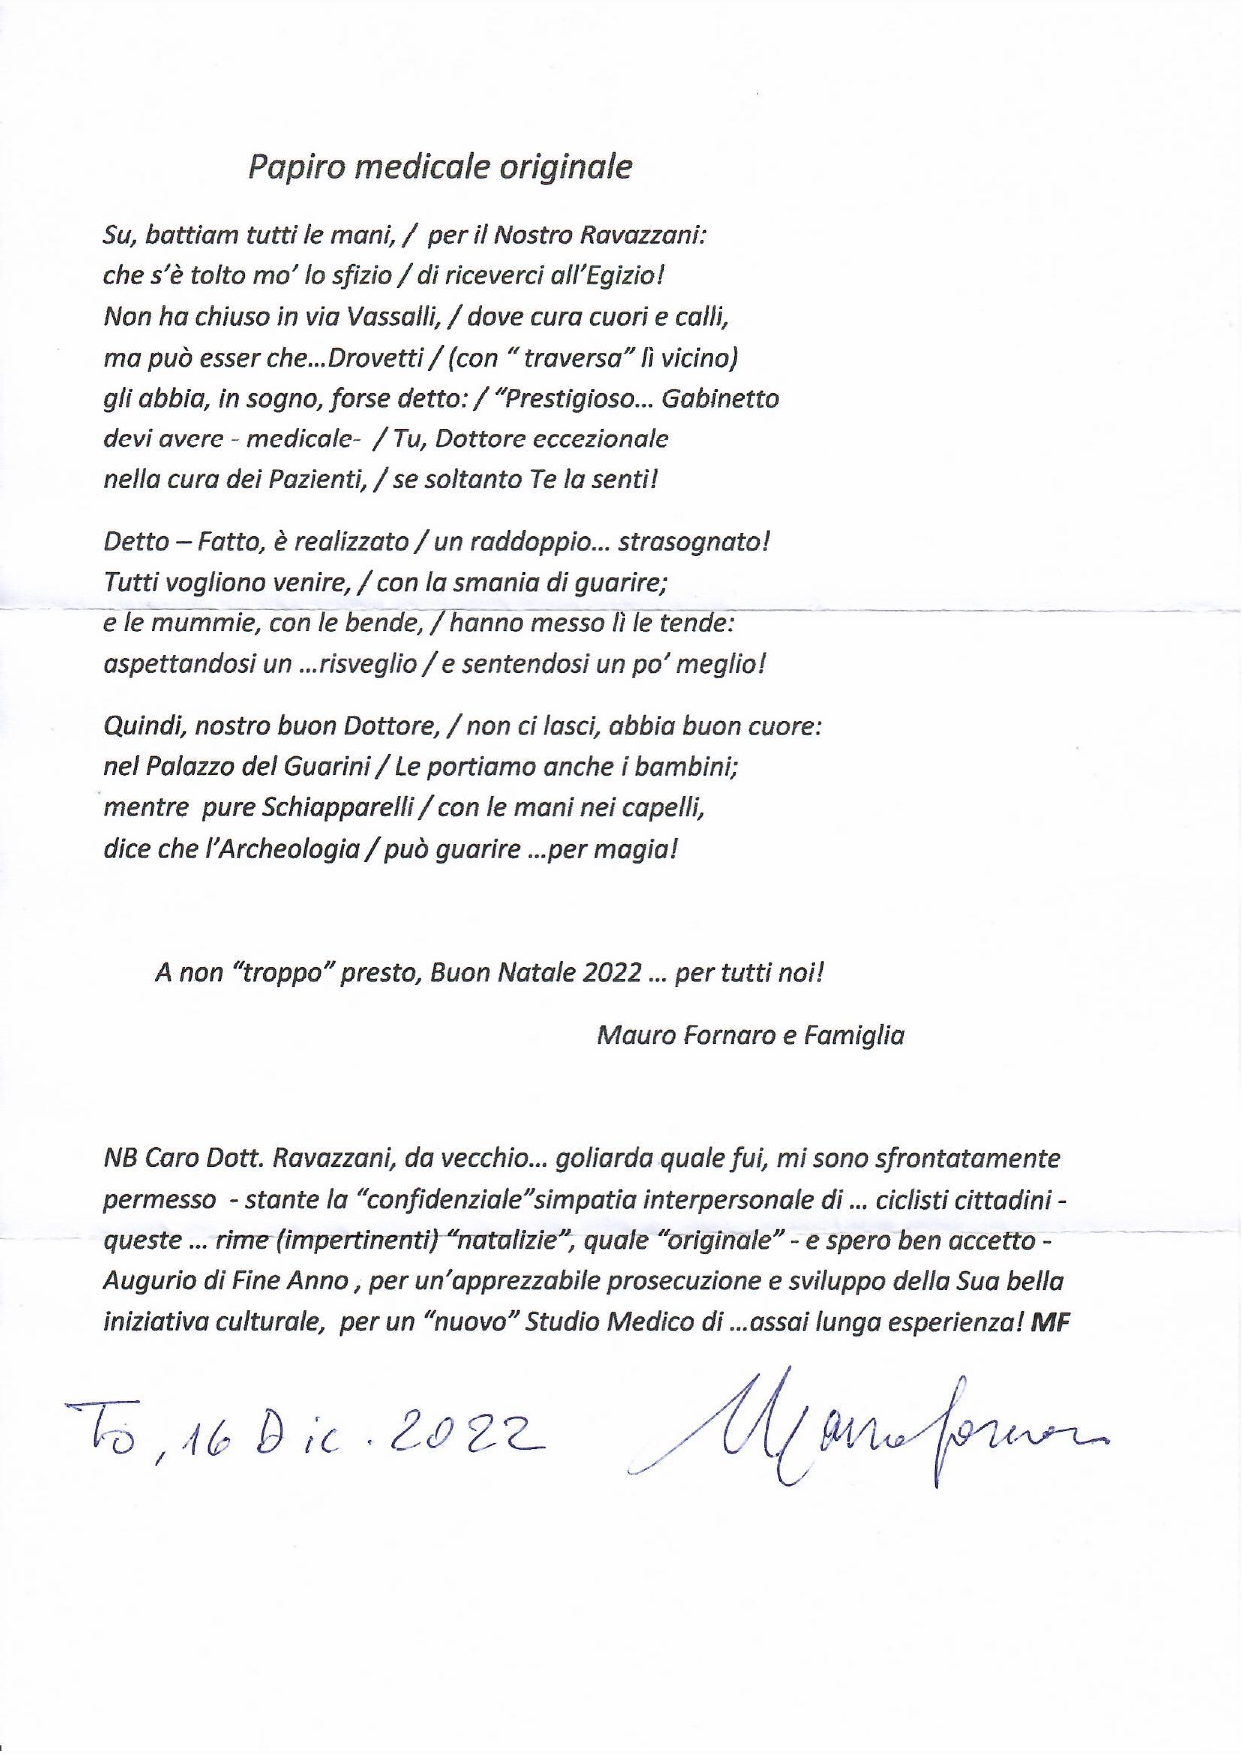 Papiro medicale originale
Su, battiam tutti le mani, / per il Nostro Ravazzani:
che s'è tolto mo' lo sfizio / di riceverci all'Egizio!
Non ha chiuso in via Vassalli, / dove cura cuori e calli,
ma può esser che...Drovetti / (con " traversa" lì vicino)
gli abbia, in sogno, forse detto: / "Prestigioso... Gabinetto
devi avere - medicale- / Tu, Dottore eccezionale
nella cura dei Pazienti, / se soltanto Te la senti!
Detto – Fatto, è realizzato / un raddoppio... strasognato!
Tutti vogliono venire, / con la smania di guarire;
e le mummie, con le bende, / hanno messo lì le tende:
aspettandosi un ...risveglio / e sentendosi un po' meglio!
Quindi, nostro buon Dottore, / non ci lasci, abbia buon cuore:
nel Palazzo del Guarini / Le portiamo anche i bambini;
mentre pure Schiapparelli / con le mani nei capelli,
dice che l'Archeologia / può guarire ...per magia!
A non "troppo" presto, Buon Natale 2022 ... per tutti noi!
Mauro Fornaro e Famiglia
NB Caro Dott. Ravazzani, da vecchio... goliarda quale fui, mi sono sfrontatamente
permesso - stante la "confidenziale"simpatia interpersonale di ... ciclisti cittadini -
queste ... rime (impertinenti) "natalizie", quale "originale" - e spero ben accetto -
Augurio di Fine Anno , per un'apprezzabile prosecuzione e sviluppo della Sua bella
iniziativa culturale, per un "nuovo" Studio Medico di ...assai lunga esperienza! MF
To, 16 Dic. 2022 Mauro Fornaro